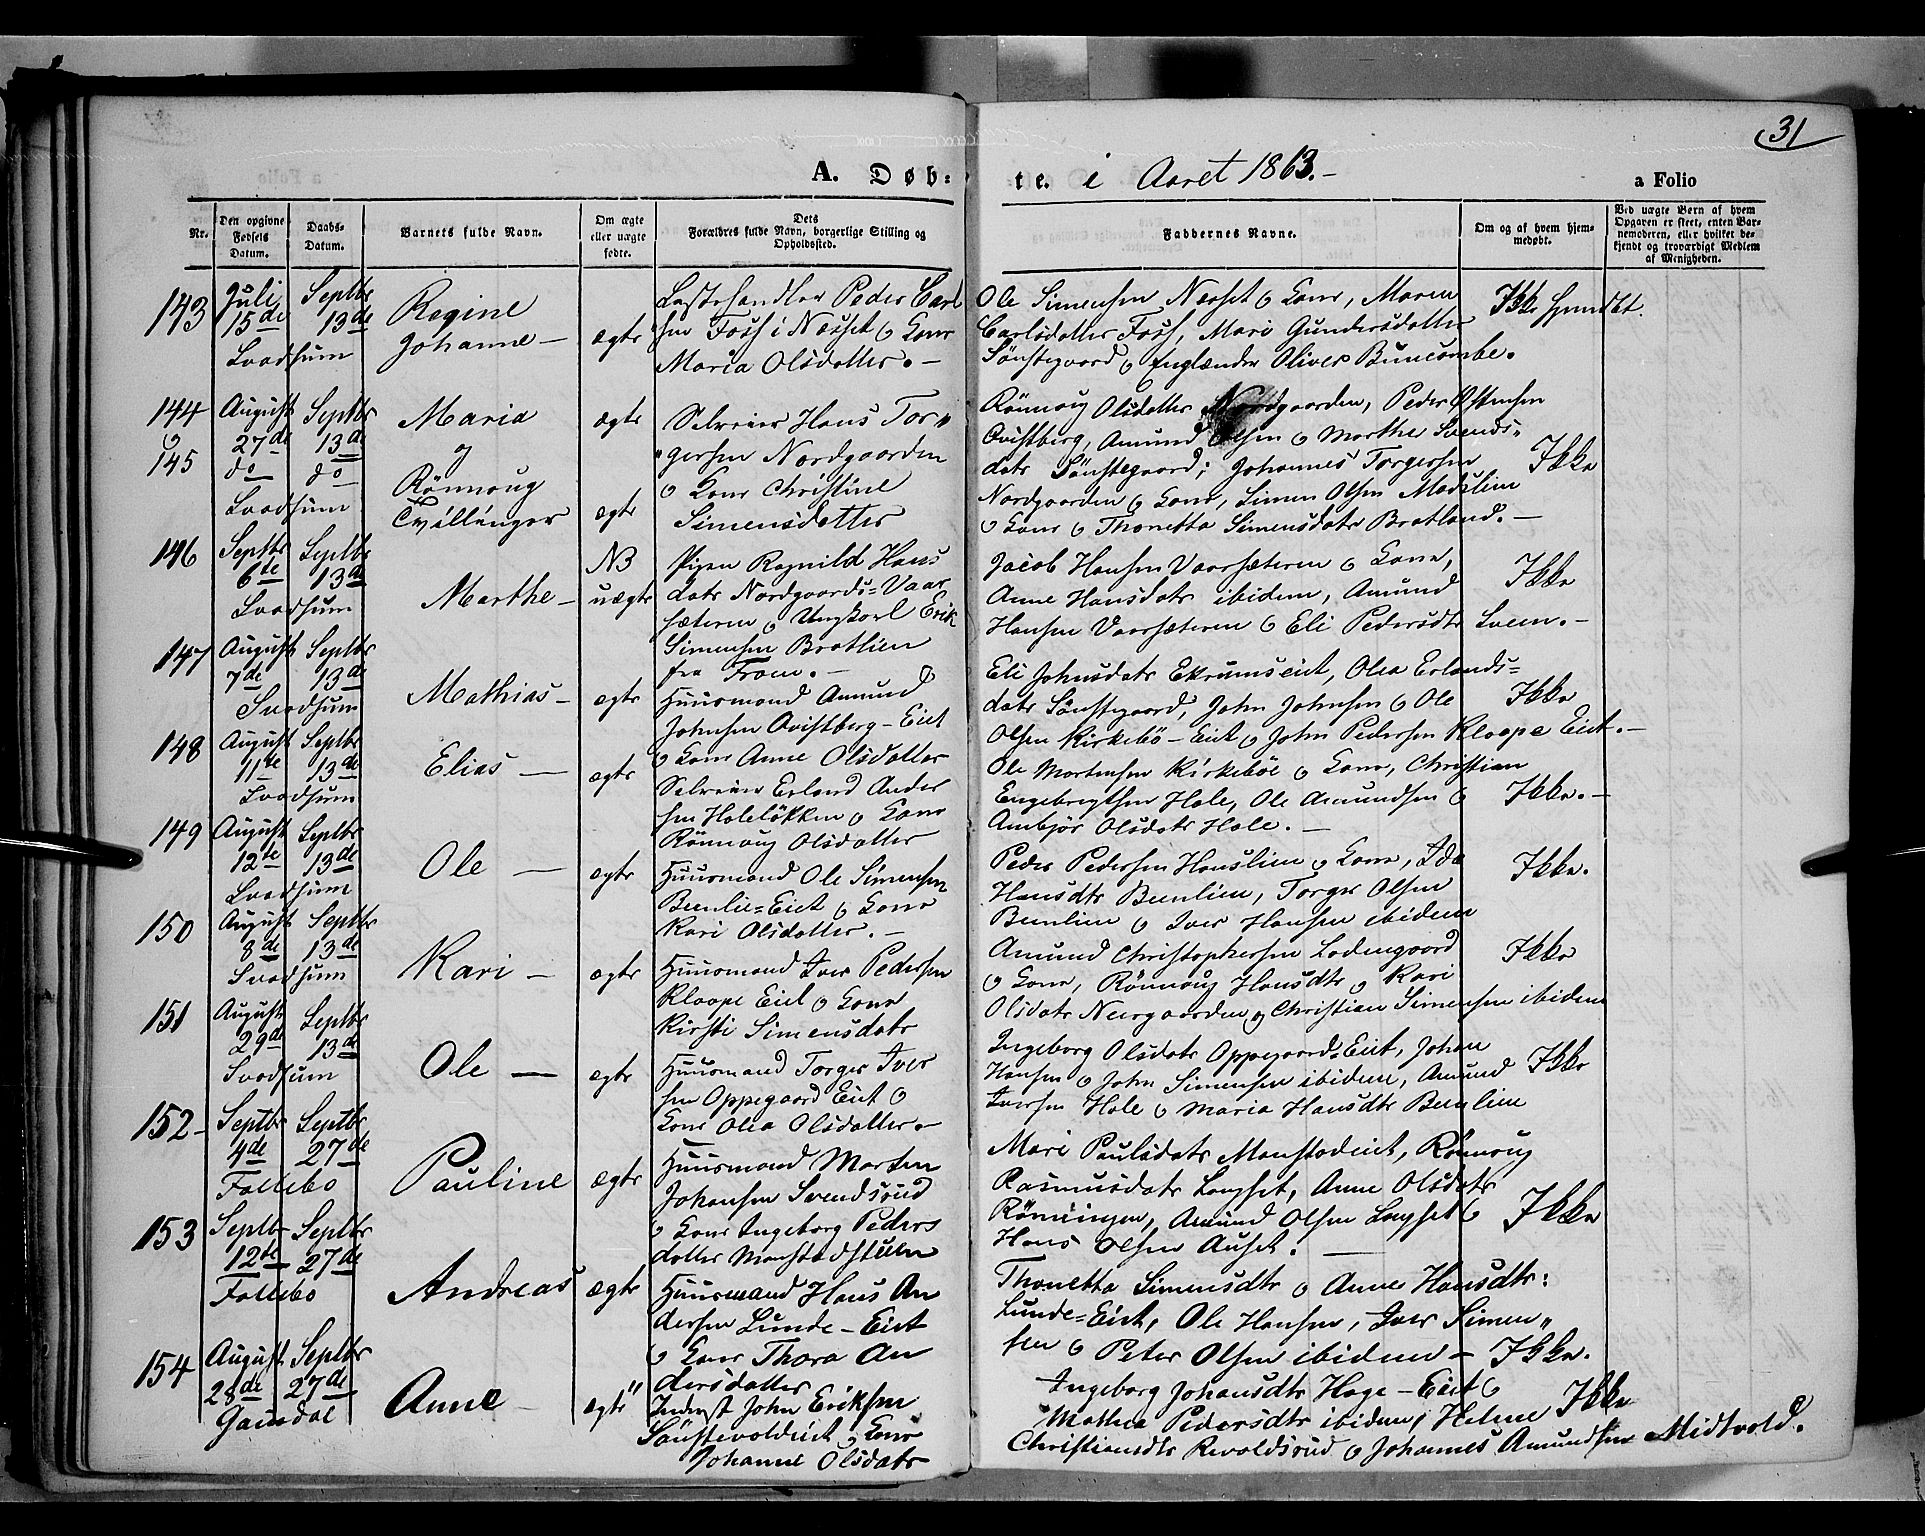 31
A. Døb=
te. i Aaret 1863.-
a Folio
Nr.
Den opgivne Fødsels Datum.
Daabs-Datum.
Barnets fulde Navn.
Om ægte eller uægte fødte.
Dets Forældres fulde Navn, borgerlige Stilling og Opholdssted.
Faddernes Navne.
Om og af hvem hjemmedøbt.
Ved uægte Børn af hvem Opgaven er skeet, enten Barnemoderen, eller hvilket bekjendt og troværdigt Medlem af Menigheden.
143
Juli 15de
Septbr 13de
Svadsum
Regine
Johanne -
ægte
Peder Carl
sen Foss i Næsset o Kone
Maria Olsdatter. -
Ole Simensen Næsset o Kone, Maren
Carlsdatter Foss, Mari Gundersdatter
Sönstegaard o Englænder Oliver Buncombe.
Ikke
144 o 145
August 27de
Septbr 13de
do do
Svadsum
Maria
og
Rönnoug
Tvillinger
ægte
ægte
Selveier Hans Tor"
"gersen Nordgaarden
o Kone Christine
Simensdatter
Rönnoug Olsdatter Nordgaarden, Peder Östensen
Qvistberg, Amund Olsen o Marthe Svends"
datr Sönstegaard; Johannes Torgersen
Nordgaarden o Kone, Simen Olsen
o Kone o Thonetta Simensdatr Bratland. -
Ikke
146
Septbr 6te
Septbr 13de
Svadsum
Marthe -
NB
uægte
Pigen Ragnild Hans
datr Nordgaards=Vaar
sæteren o Ungkarl Erik
Simensen Bratlien
fra Fron. -
Jacob Hansen Vaarsæteren o Kone,
Anne Hansdatr ibidem, Amund
Hansen Vaarsæteren o Eli Pedersdtr Sveen. -
Ikke
147
August 7de
Septbr 13de
Svadsum
Mathias -
ægte
Huusmand Amund
Johnsen Qvistberg - Eiet
o Kone Anne Olsdatter
Eli Johnsdatr Ekrumseiet, Olea Erlands=
datr Sönstegaard, John Johnsen o Ole
Olsen Kirkebö - Eiet o John Pedersen Kloppe Eiet. -
Ikke
148
August 11te
Septbr 13de
Svadsum
Elias -
ægte
Selveier Erland Ander
sen Holelökken o Kone
Rönnoug Olsdatter
Ole Mortensen Kirkeböe o Kone, Christian
Engebregtsen Hole, Ole Amundsen o
Ambjör Olsdatr Hole. -
Ikke. -
149
August 12te
Septbr 13de
Svadsum
Ole -
ægte
Huusmand Ole Simensen
Bunlie=Eiet o Kone
Kari Olsdatter. -
Peder Pedersen Hauslien o Kone, Ida
Hansdtr Bunlien, Torger Olsen
Bunlien o Iver Hansen ibidem
Ikke.
150
August 8de
Septbr 13de
Svadsum
Kari -
ægte
Huusmand Iver Pedersen
Kloppe Eiet o Kone
Kirsti Simensdatr
Amund Christophersen Lodengaard
o Kone, Rönnoug Hansdtr o Kari
Olsdatr Neergaarden o Christian Simensen ibidem
Ikke
151
August 29de
Septbr 13de
Svadsum
Ole -
ægte
Huusmand Torger Iver
sen Oppegaard Eiet o
Kone Olea Olsdatter -
Ingeborg Olsdatr Oppegaard=Eiet, Johan
Hansen o John Simensen ibidem, Amund
Iversen Hole o Maria Hansdtr Bunlien
Ikke
152 -
Septbr 4de
Septbr 27de
Follebo
Pauline
ægte
Huusmand Morten
Johansen Svendsrud
o Kone Ingeborg Peders
datter
Mari Paulsdatr Monstadeiet, Rönnoug
Rasmusdatr Longset, Anne Olsdatr
Rönningen, Amund Olsen Longset o
Hans Olsen Auset. -
Ikke
153
Septbr 12te
Septbr 27de
Follebo
Andreas
ægte
Huusmand Hans An
dersen Lunde - Eiet
o Kone Thora An
dersdatter
Thonetta Simensdtr o Anne Hansdtr:
Lunde=Eiet, Ole Hansen, Iver Simen"
sen o Peter Olsen ibidem -
Ikke.
154
August 28de
Septbr 27de
Gausdal
Anne -
ægte"
Inderst John Eriksen
o Kone
Johanne Olsdatr
Ingeborg Johansdtr Hage - Eiet o
Mathea Pedersdtr ibidem, Helene
Christiansdtr o Johannes Amundsen Midtvold.
Ikke